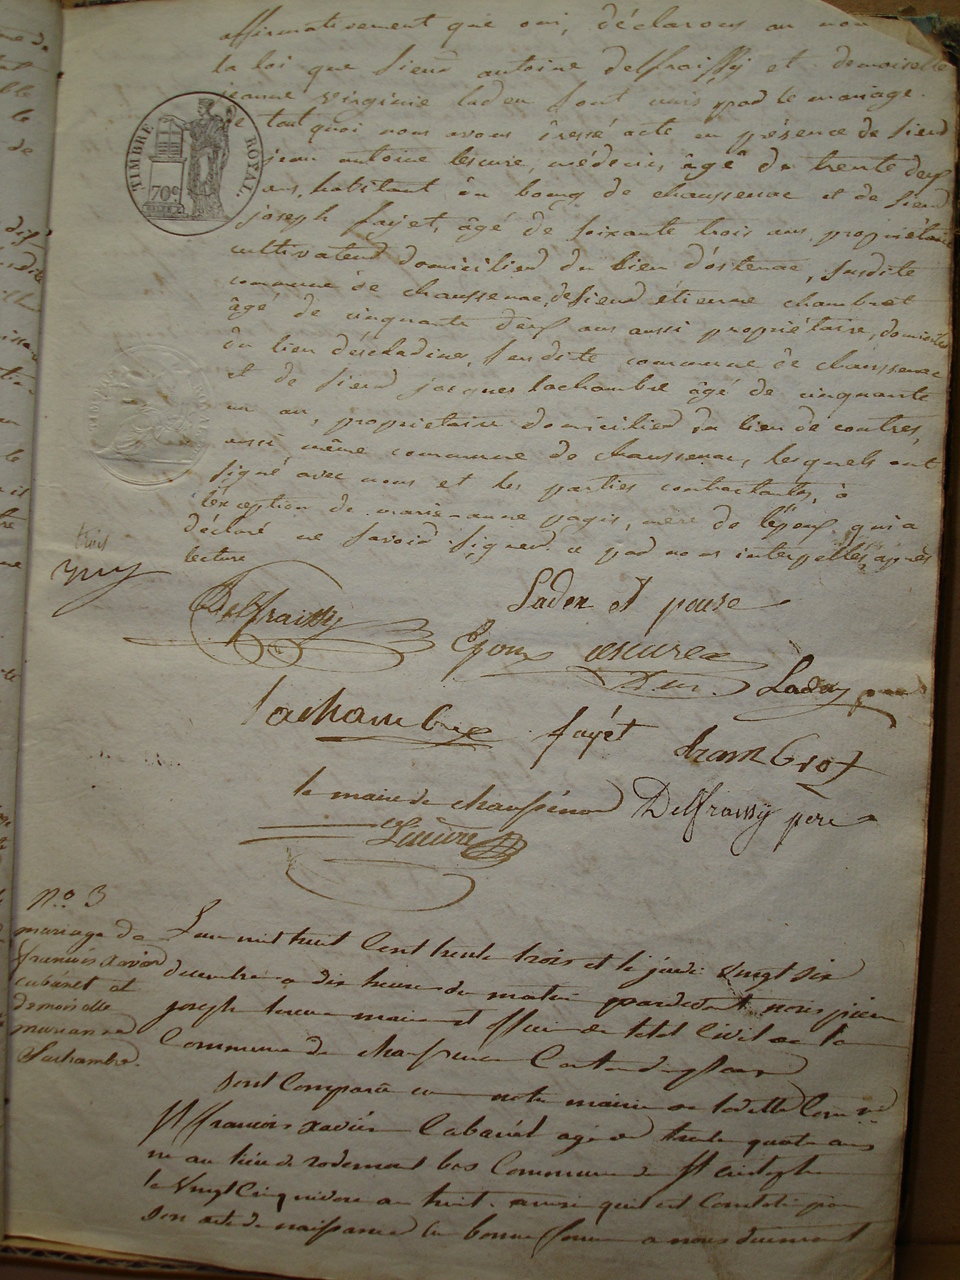 affirmativement que oui, déclarons au nom
la loi que Sieur antoine delfraissy et demoiselle
jeanne virginie ladon sont unis par le mariage.
tout quoi nous avons dressé acte en présence de Sieur
jean antoine lescure, médecin, âgé de trente deux
ans, habitant du bourg de chaussenac et de Sieur
joseph fayet, âgé de soixante trois ans, propriétaire
cultivateur domicilié du lieu d'ostenac, susdite
commune de chaussenac, de Sieur étienne chambret
âgé de cinquante deux ans aussi propriétaire, domicilié
du lieu descladines, susdite commune de chaussenac
et de Sieur jacques lachambre âgé de cinquante
un an, propriétaire domicilié du lieu de contres,
aussi même commune de chaussenac, lesquels ont
signé avec nous et les parties contractantes, à
l'exception de marie-anne pagis, mère de l'époux qui a
déclaré ne savoir signer de par nous interpellée, après
lecture
TIMBRE ROYAL.
70c
trois
Delfraissy
Ladon et pouse
Epoux
Lescure
Ladon père
Lachambre
fayét
chambrot
le maire de chaussenac
Delfraissy père
Lescure
No. 3
mariage de
francois xavier
cabanet et
demoiselle
marianne
Lachambre.
L'an mil huit Cent trente trois et le jeudi vingt six
decembre a dix heures du matin pardevant nous pierre
joseph lescure maire et officier de letat Civil de la
Commune de chaussenac Canton de pleaux
sont Comparu en notre mairie de ladite Commune
St francois xavier Cabanét agé de trente quatre ans
né au lieu de rodemont bas Commune de St cristophe
le vingt Cinq nivose an huit. ainsi qu'il est Constaté par
son acte de naissance en bonne forme a nous duement